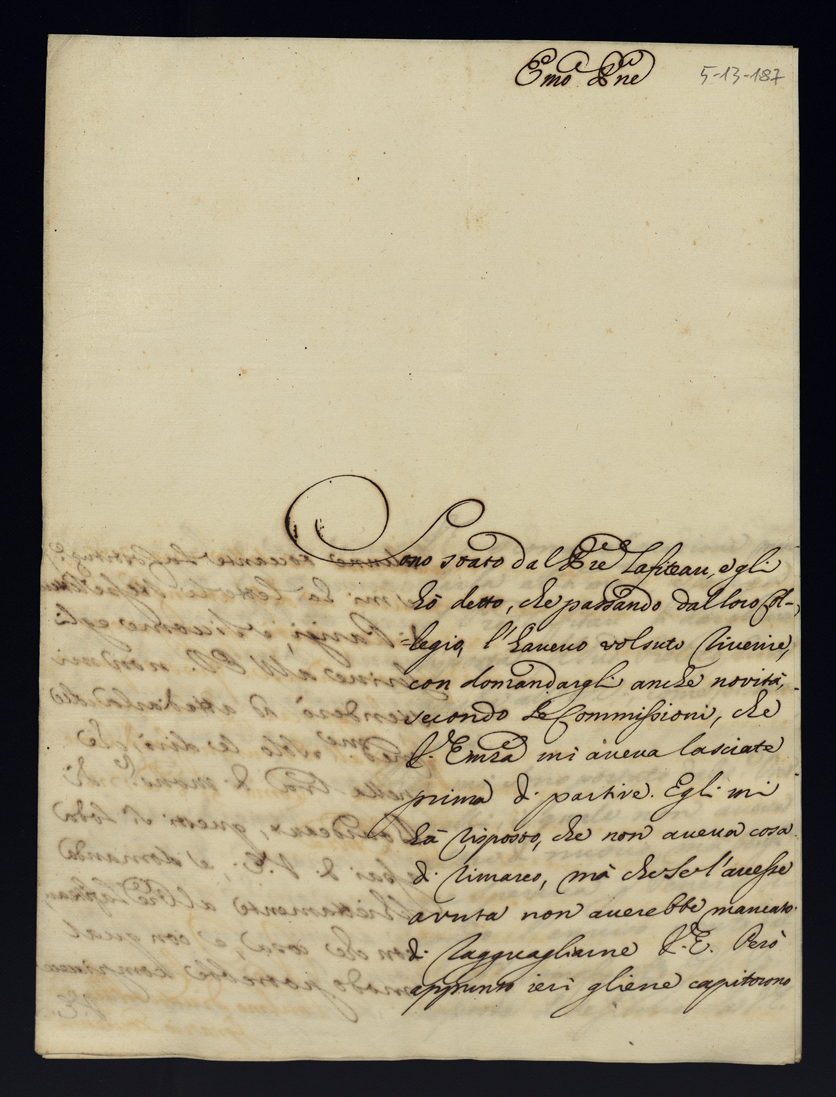 Emo Pne
5-13-187
Sono stato dal Pre Lafiteau, e gli
hò detto, che passando dal loro Col-
=legio, l'haveuo volsuto riuerire,
con domandargli anche novità,
secondo le Commissioni, che
V. Emza mi aueua lasciate
prima di partire. Egli mi
hà risposto, che non aueua cosa
di rimarco, mà che se l'auesse
avuta non auerebbe mancato
di ragguagliarne V. E. Però
appunto ieri gliene capitorono